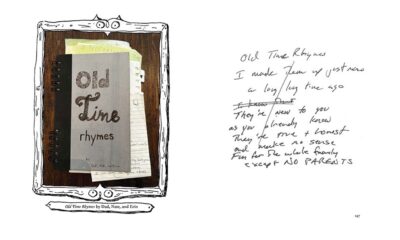 Old
Time
rhymes
Old Time Rhymes by Dad, Nate, and Evie
Old Time Rhymes
I made them up just now
a long long time ago
They're new to you
as you already know
They're true & honest
and make no sense
Fun for the whole family
except NO PARENTS